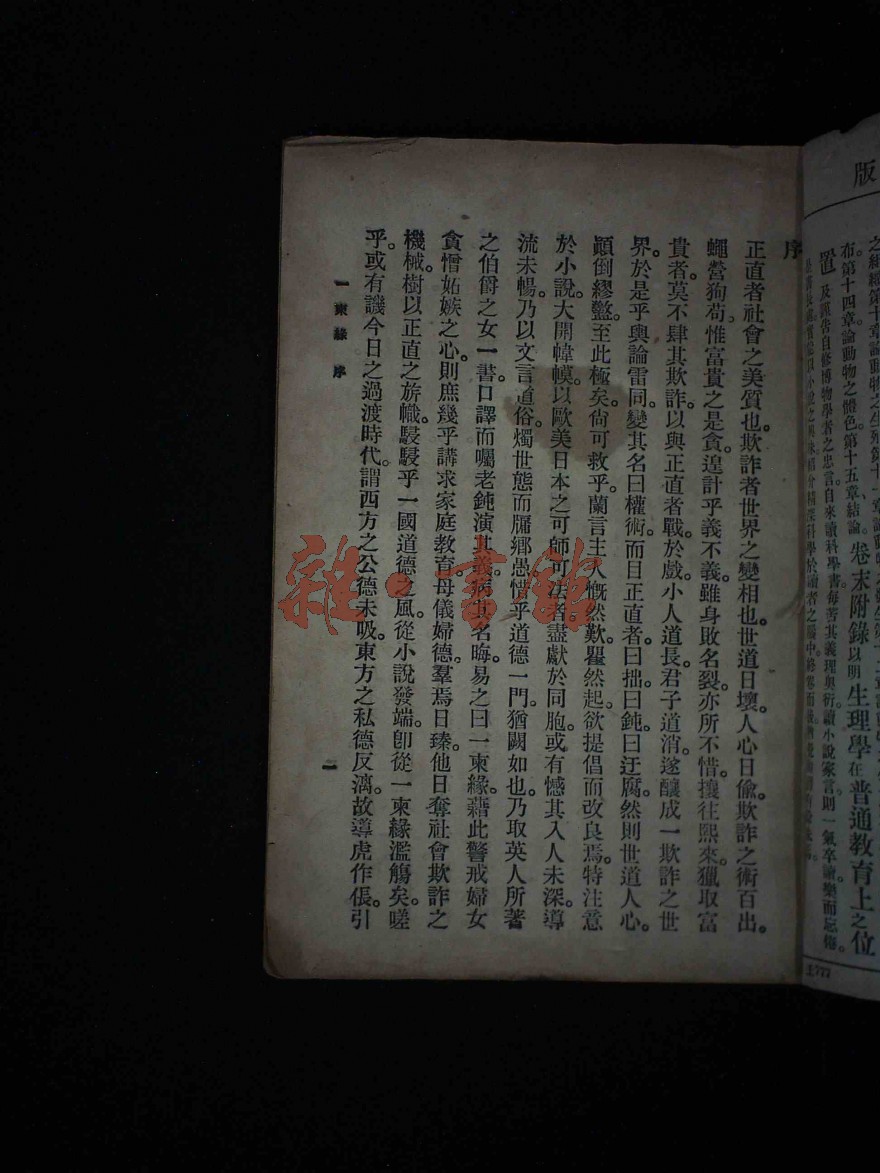 序
正直者社會之美質也。欺詐者世界之變相也。世道日壞。人心日偸。欺詐之術百出。
蠅營狗苟。惟富貴之是貪。遑計乎義不義。雖身敗名裂。亦所不惜。攘往熙來。獵取富
貴者。莫不肆其欺詐。以與正直者戰。於戲。小人道長。君子道消。遂釀成一欺詐之世
界。於是乎輿論雷同。變其名曰權術。而目正直者。曰拙。曰鈍。曰迂腐。然則世道人心。
顚倒繆盭。至此極矣。尙可救乎。蘭言主人慨然歎。瞿然起。欲提倡而改良焉。特注意
於小說。大開幃幙。以歐美日本之可師可法者。盡獻於同胞。或有憾其入人未深。導
流未暢。乃以文言道俗。燭世態而牖鄕愚。惜乎道德一門。猶闕如也。乃取英人所著
之伯爵之女一書。口譯而囑老鈍演其義。病其名晦。易之曰一束緣。藉此警戒婦女
貪憎妬嫉之心。則庶幾乎講求家庭敎育。母儀婦德。羣焉日臻。他日奪社會欺詐之
機械。樹以正直之旂幟。駸駸乎一國道德之風。從小說發端。卽從一束緣濫觴矣。嗟
乎。或有譏今日之過渡時代。謂西方之公德未吸。東方之私德反漓。故導虎作倀。引
一束緣 序
一
版
布。第十四章論動物之體色。第十五章、結論。卷末附錄以明生理學在普通敎育上之位
置及謹告自修博物學者之忠言。自來讀科學書每苦其義理奧衍。讀小說家言則一氣卒讀樂而忘倦。
雜·書館